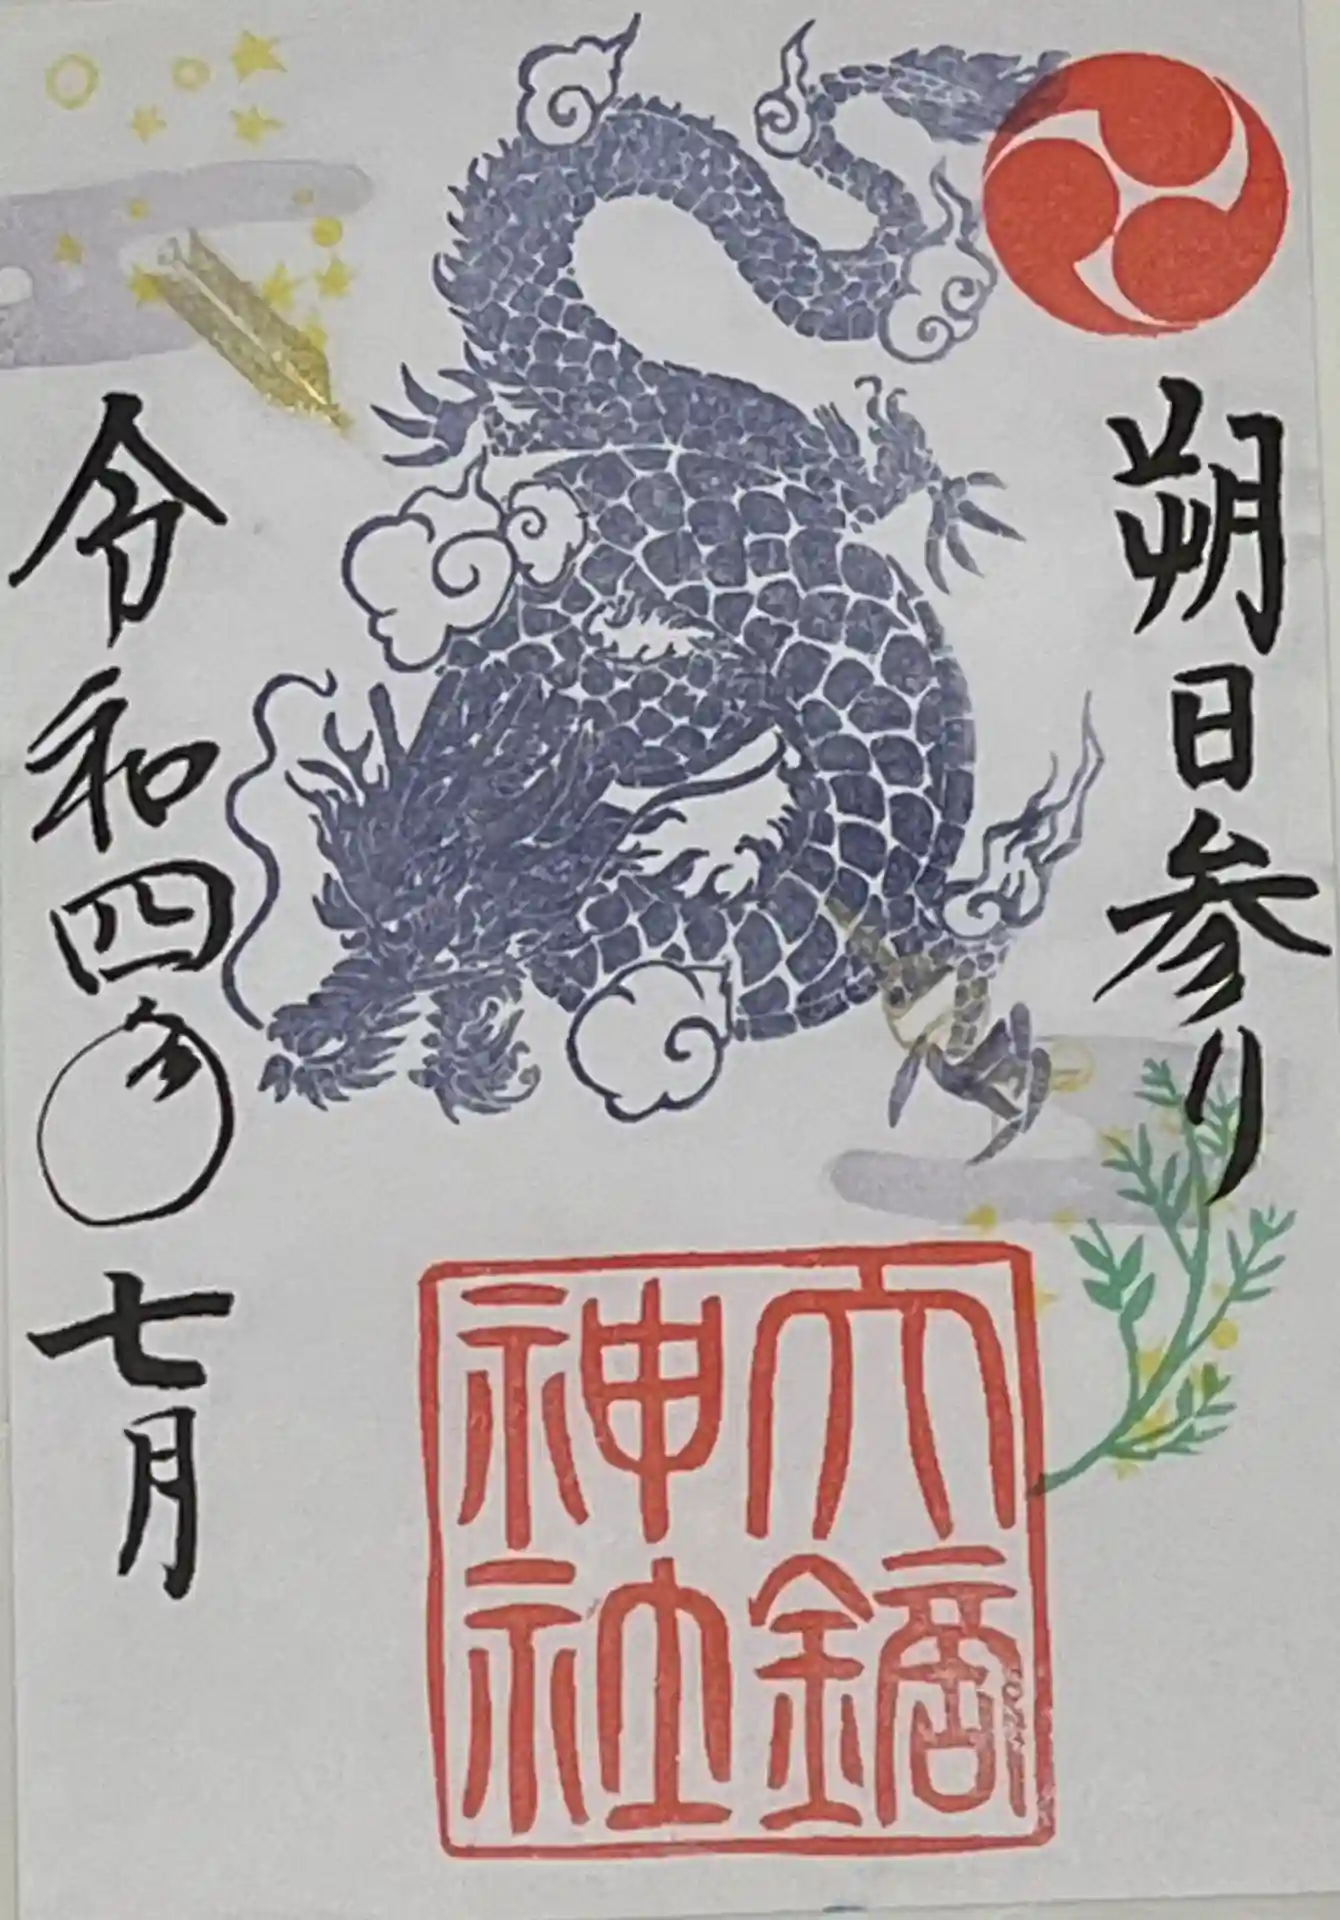 朔日参り
六鏑
神社
令和四年七月